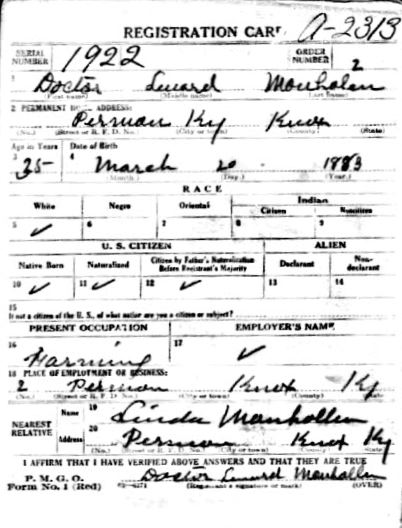 REGISTRATION CARD A-2313
SERIAL NUMBER 1922 ORDER NUMBER 2
1 Doctor Lenard Monholan
(First name) (Middle name) (Last name)
2 PERMANENT HOME ADDRESS:
Permon Ky Knox
(No.) (Street or R. F. D. No.) (City or town) (County) (State)
Age in Years Date of Birth
3 35 4 March 20 1883
(Month) (Day) (Year)
RACE
White Negro Oriental Indian
Citizen Noncitizen
5 ✓ 6 7 8 9
U. S. CITIZEN ALIEN
Native Born Naturalized Citizen by Father's Naturalization Before Registrant's Majority Declarant Non-declarant
10 ✓ 11 ✓ 12 ✓ 13 14
15
If not a citizen of the U. S., of what nation are you a citizen or subject?
PRESENT OCCUPATION EMPLOYER'S NAME
16 Farming 17 ✓
18 PLACE OF EMPLOYMENT OR BUSINESS:
2 Permon Knox Ky
(No.) (Street or R. F. D. No.) (City or town) (County) (State)
NEAREST RELATIVE
Name 19 Linda Monhollen
Address 20 Permon Knox Ky
(No.) (Street or R. F. D. No.) (City or town) (County) (State)
I AFFIRM THAT I HAVE VERIFIED ABOVE ANSWERS AND THAT THEY ARE TRUE
P. M. G. O.
Form No. 1 (Red) Doctor Lenard Monhollen
(Registrant's signature or mark) (OVER)